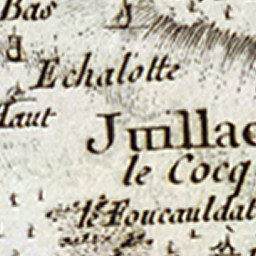 Bas
Echalotte
Haut
Juillac
le Cocq
le Foucauldat